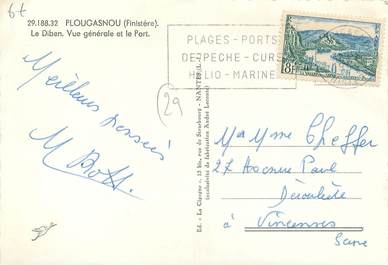 6t
29.188.32 PLOUGASNOU (Finistère).
Le Diben. Vue générale et le Port.
PLAGES - PORTS
DE PECHE - CURE
HELIO - MARINE
8F
29
Meilleurs pensées
M. Bott
Ed. - La Cigogne - 15 bis, rue de Strasbourg - NANTES (L.-I.)
Exclusivité de fabrication André Leconte
M & Mme Cheffer
27 Avenue Paul
Déroulède
à Vincennes
Seine